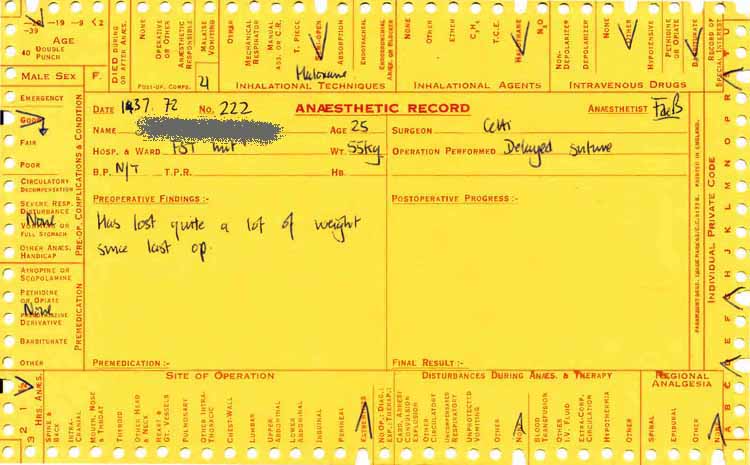 -39 -19 -9 <2
AGE
40 DOUBLE PUNCH
MALE SEX F.
DIED DURING OR AFTER ANÆS.
NONE
OPERATIVE OR OTHER
ANÆSTHETIC RESPONSIBLE
MALAISE VOMITING
OTHER
POST-OP. COMPS.
21
MECHANICAL RESPIRATOR
MANUAL ASS. OR C.R.
T. PIECE
SEMI-OPEN
ABSORPTION
ENDOTRACHEAL
ENDOBRONCHIAL ANÆS. OR BLOCKER
INHALATIONAL TECHNIQUES
NONE
OTHER
ETHER
C₃H₆
T.C.E.
HALOTHANE
N₂O
INHALATIONAL AGENTS
NON-DEPOLARIZER
DEPOLARIZER
OTHER
HYPOTENSIVE
PETHIDINE OR OPIATE
BARBITURATE
INTRAVENOUS DRUGS
RECORD OF SPECIAL INTEREST
DATE 1437. 72 No. 222 ANÆSTHETIC RECORD ANÆSTHETIST
NAME AGE 25 SURGEON
HOSP. & WARD FST hut WT. 55kg OPERATION PERFORMED Delayed suture
B.P. N/T T.P.R. HB.
PREOPERATIVE FINDINGS :- POSTOPERATIVE PROGRESS :-
Has lost quite a lot of weight
since last op.
PREMEDICATION :- FINAL RESULT :-
EMERGENCY
GOOD
FAIR
POOR
CIRCULATORY DECOMPENSATION
SEVERE RESP. DISTURBANCE
None
VOMITING OR FULL STOMACH
OTHER ANÆS. HANDICAP
PRE-OP. COMPLICATIONS & CONDITION
ATROPINE OR SCOPOLAMINE
PETHIDINE OR OPIATE
None
DERIVATIVE
BARBITURATE
OTHER
PREMEDICATION
INDIVIDUAL PRIVATE CODE
A B C D E F G H J K L M N O P R T U
3 2 1 ½ HRS. ANÆS.
SITE OF OPERATION
SPINE & BACK
INTRA-CRANIAL
MOUTH, NOSE & THROAT
THYROID
OTHER HEAD & NECK
HEART & GT. VESSELS
PULMONARY
OTHER INTRA-THORACIC
CHEST-WALL
LUMBAR
UPPER ABDOMINAL
LOWER ABDOMINAL
INGUINAL
PERINEAL
EXTREMITIES
DISTURBANCES DURING ANÆS. & THERAPY
CARD. ARREST CONVULSION EXPLOSION
OTHER CIRCULATORY
UNCOMPENSATED RESPIRATORY
UNPROTECTED VOMITING
OTHER
BLOOD TRANSFUSION
OTHER I.V. FLUID
EXTRA-CORP. CIRCULATION
HYPOTHERMIA
OTHER
REGIONAL ANALGESIA
SPINAL
EPIDURAL
OTHER